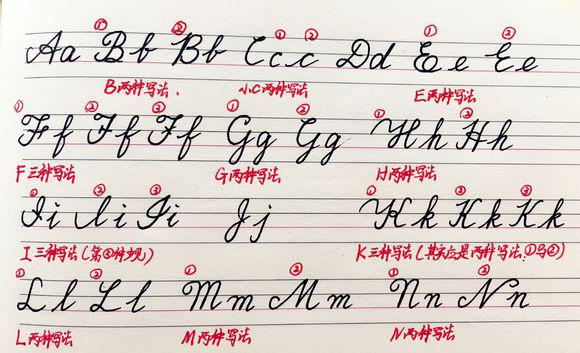 ① ② ① ② ① ②
Aa Bb Bb Ccc Dd Ee Ee
B两种写法. 小c两种写法 E两种写法
① ② ③ ① ② ① ②
Ff Ff Ff Gg Gg Hh Hh
F三种写法 G两种写法 H两种写法
① ② ③ ① ② ③
Ii Ii Ii Jj Kk Kk Kk
I三种写法(第③种少见) K三种写法(其实应是两种写法:①与②)
① ② ① ② ① ②
Ll Ll Mm Mm Nn Nn
L两种写法 M两种写法 N两种写法